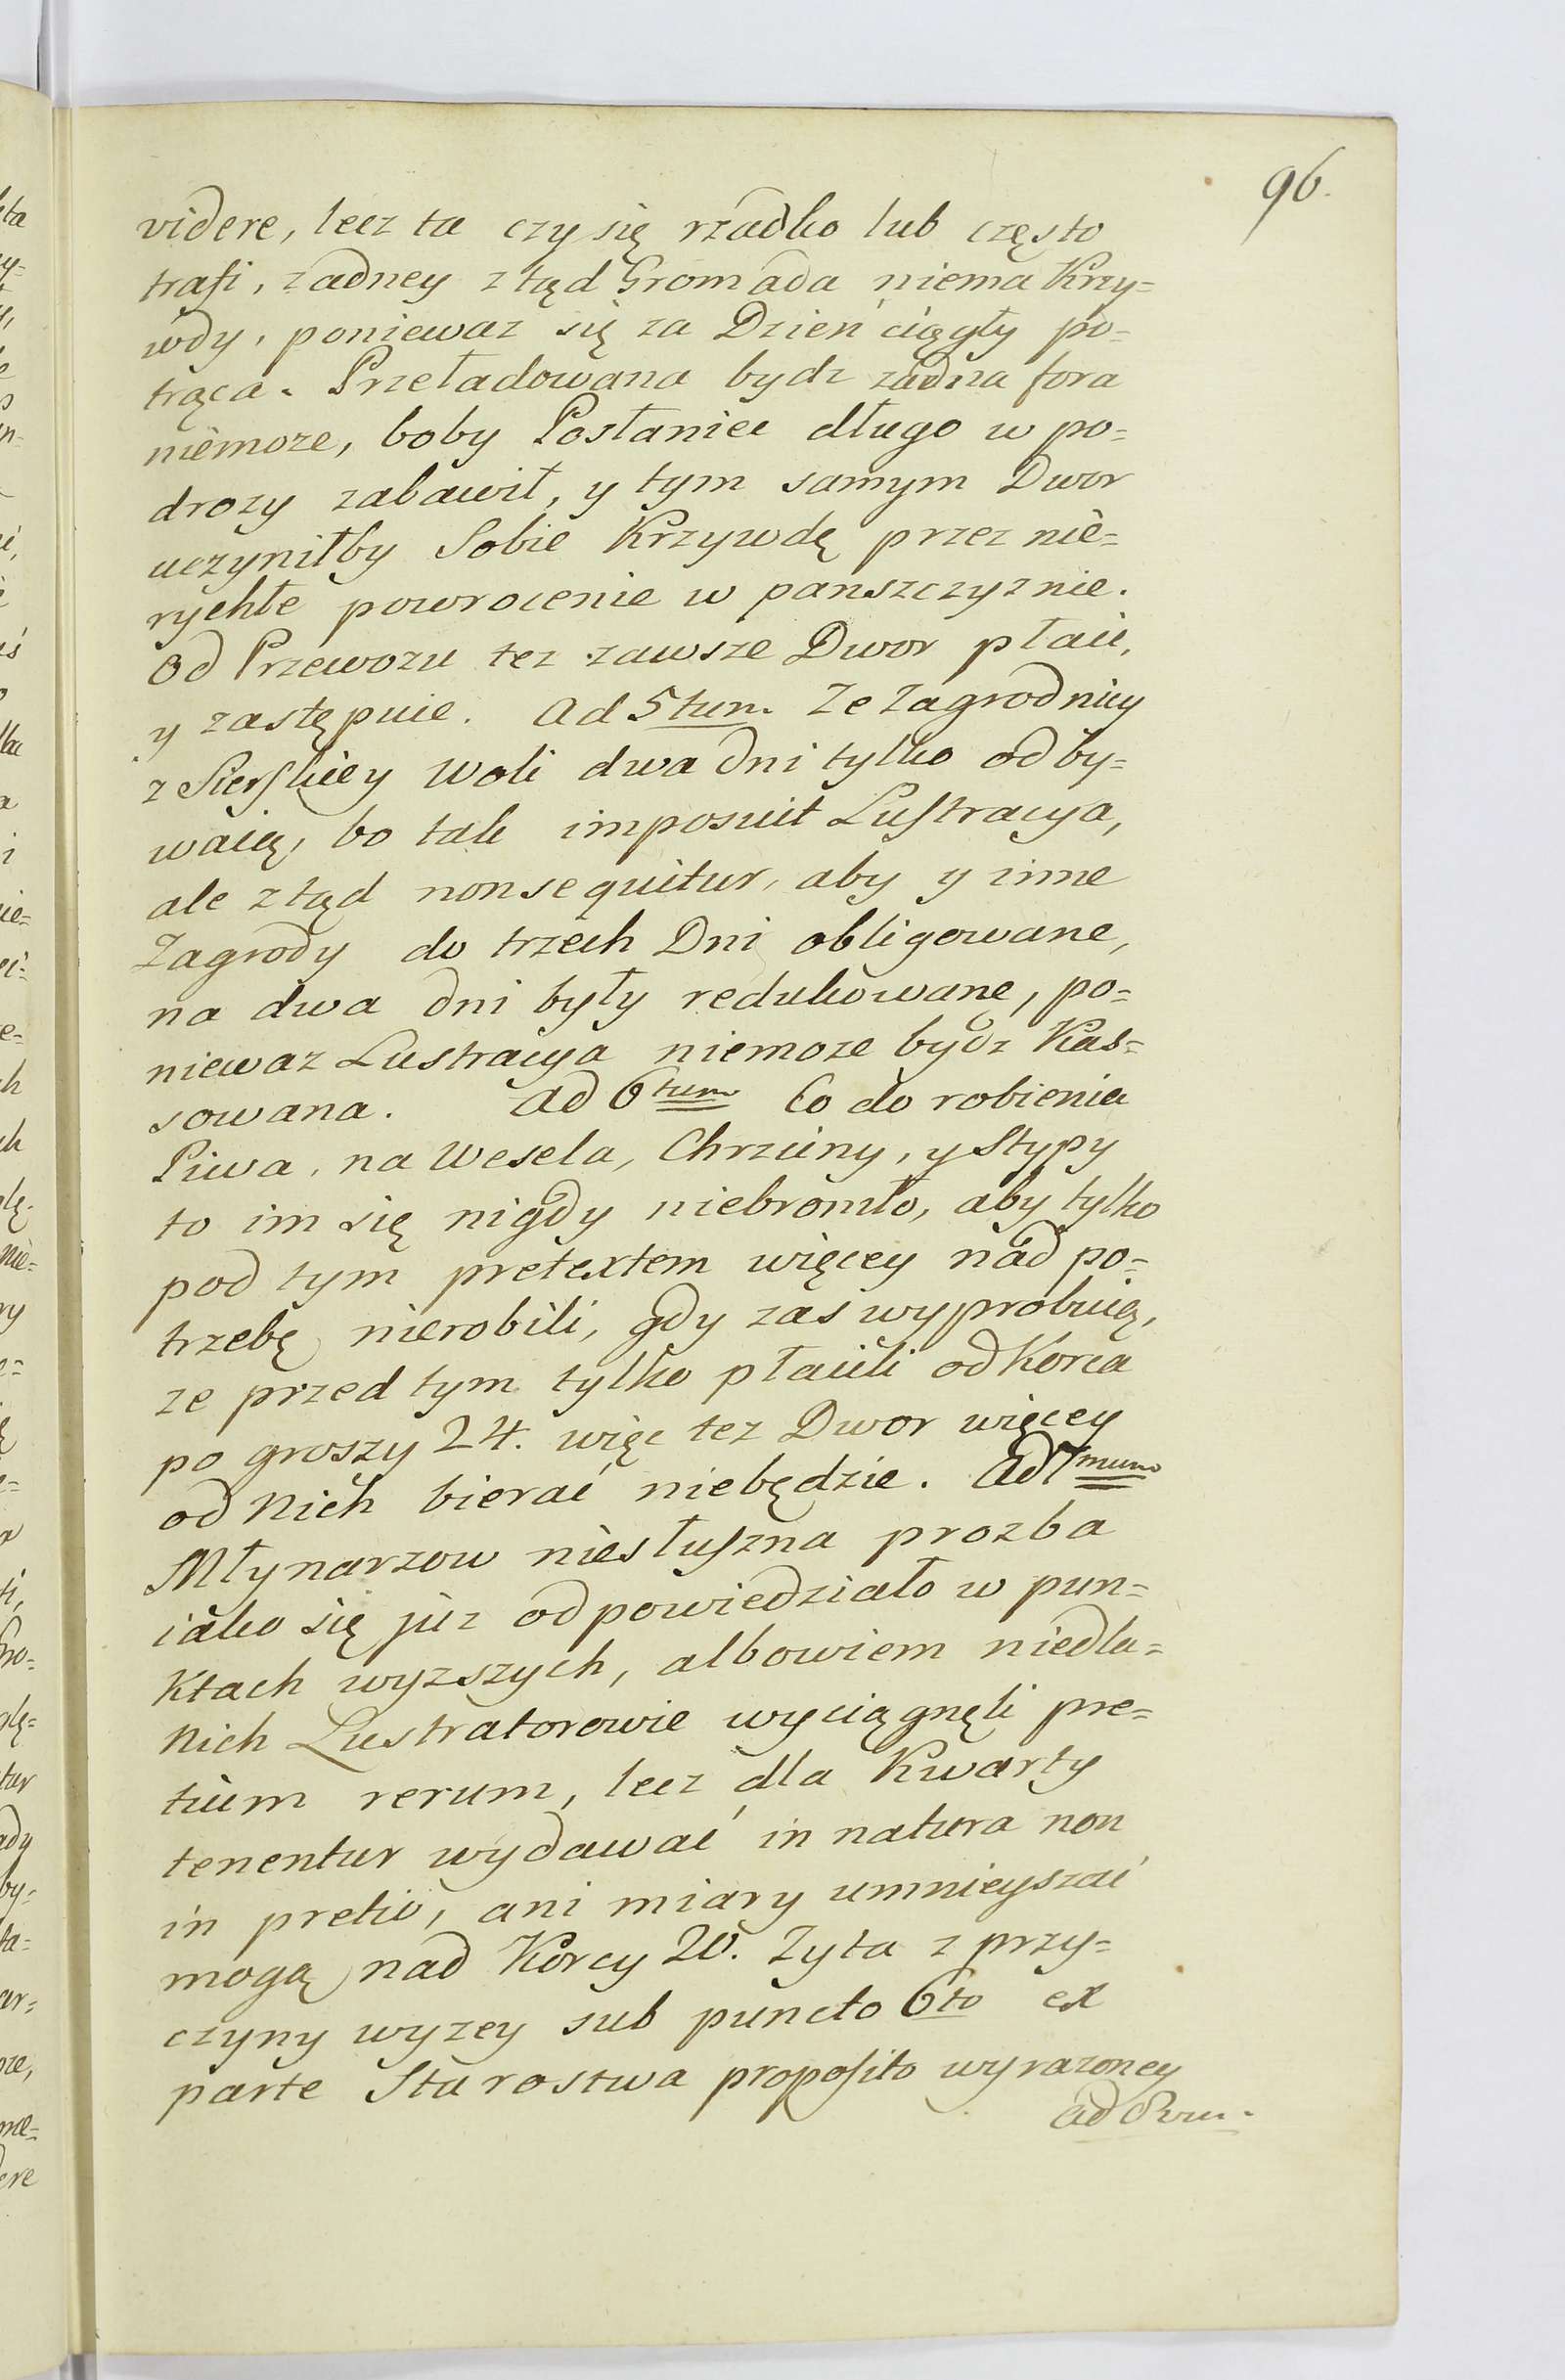 96.
videre, lecz ta czy się rzadko lub często
trafi, zadney ztąd Gromada niema Krzy=
wdy, poniewaz się za Dzień ciągły po=
trąca. Przeładowana bydz zadna fora
niemoze, boby Posłaniec długo w po=
drozy zabawił, y tym samym Dwor
uczyniłby Sobie Krzywdę przez nie=
rychłe powrocenie w panszczyznie.
Od Przewozu tez zawsze Dwor płaci,
y zastępuie. Ad 5tum. Ze Zagrodnicy
z Sierskiey Woli dwa dni tylko odby=
waią, bo tak imposuit Lustracya,
ale ztąd non sequitur, aby y inne
Zagrody do trzech Dni obligowane,
na dwa dni były redukowane, po=
niewaz Lustracya niemoze bydz Kas=
sowana. Ad 6tum Co do robienia
Piwa, na Wesela, Chrzciny, y Stypy
to im się nigdy niebroniło, aby tylko
pod tym pretextem więcey nad po=
trzebę nierobili, gdy zas wyprobuią,
ze przed tym tylko płacili od Korca
po groszy 24. więc tez Dwor więcey
od Nich bierać niebędzie. Ad 7mum
Młynarzow niesłuszna prozba
iako się juz odpowiedziało w pun=
ktach wyzszych, albowiem niedla=
Nich Lustratorowie wyciągnęli pre=
tium rerum, lecz dla Kwarty
tenentur wydawać in natura non
in pretio, ani miary umnieyszać
mogą nad Korcy 20. Zyta z przy=
czyny wyzey sub puncto 6to ex
parte Starostwa proposito wyrazoney
ad 8vum.